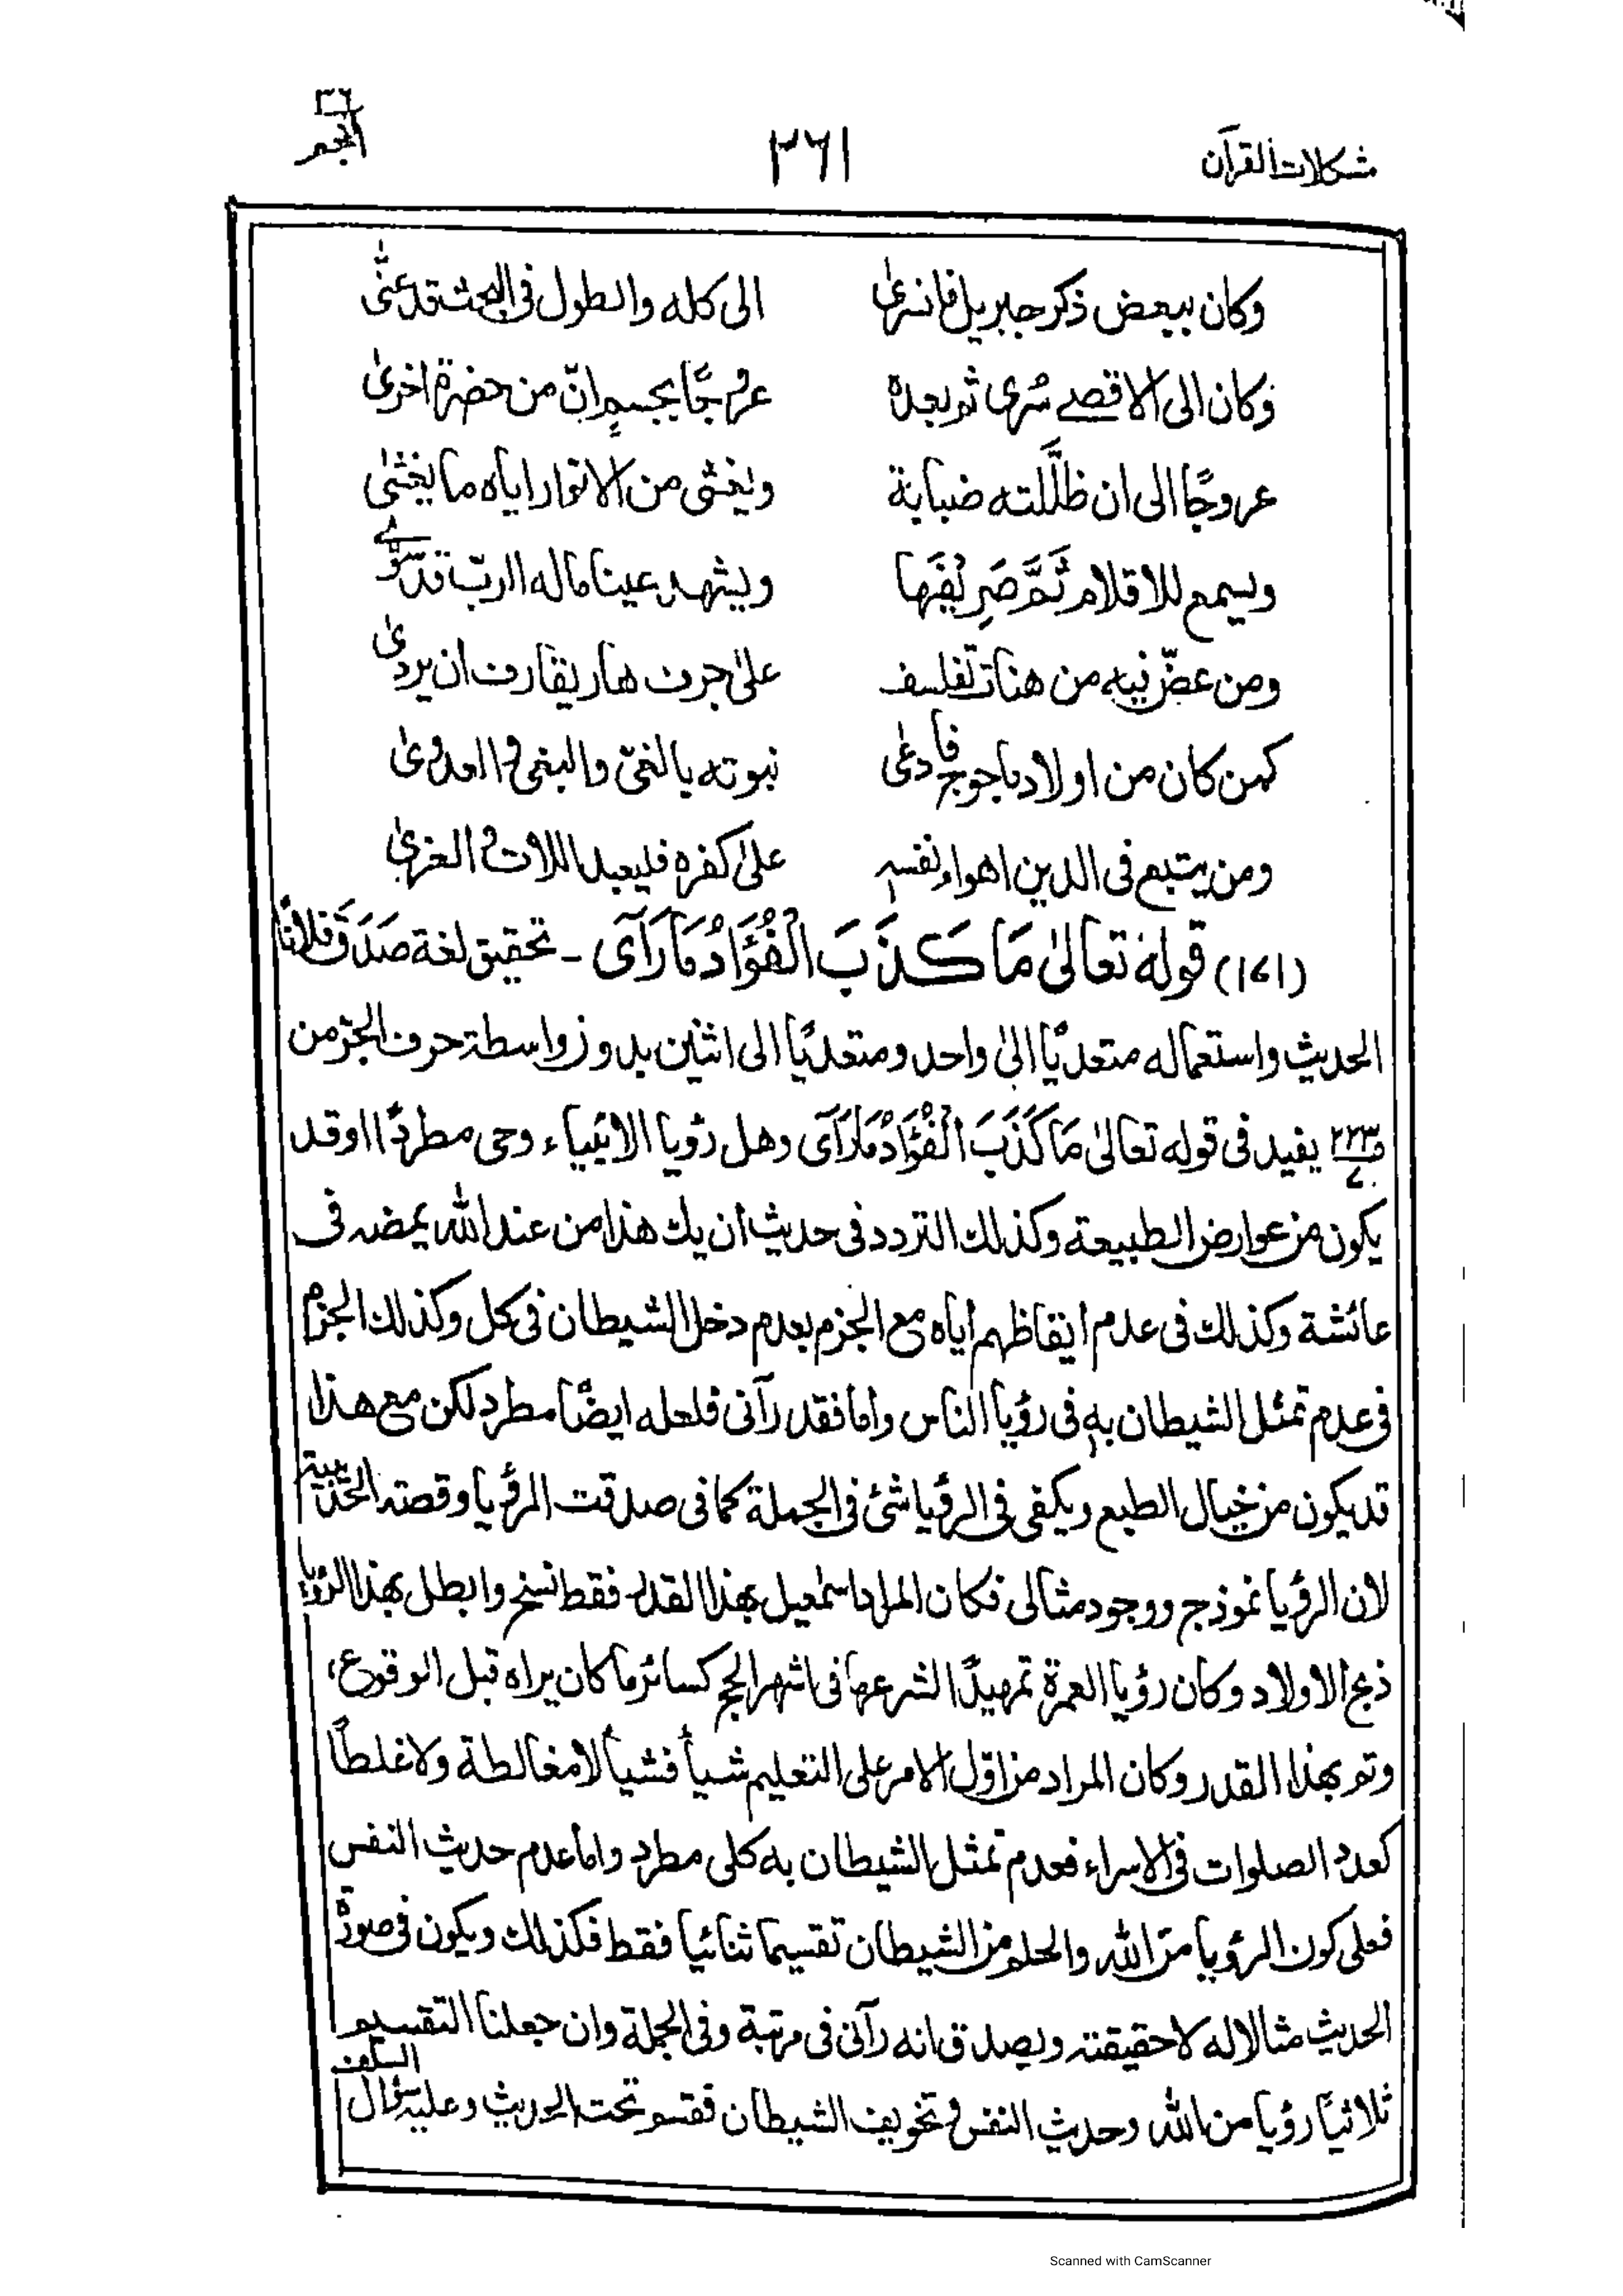 مشكلات القرآن ٣٦١ ٢٦ النجم
وكان ببعض ذكر جبريل فانسرىٰ الى كله والطول فى البحث قد عنّٰى
وكان الى الاقصے سُرى ثم بعده عروجًا بجسمٍ انّ من حضرة اخرىٰ
عروجًا الى ان ظلَّلته ضبابة ويغشى من الانوار اياه ما يغشٰى
ويسمع للاقلام ثَمَّ صَرِيْفَها ويشهد عينا ماله الربّ قد سوّے
ومن عضّ فيه من هنات تفلسف علىٰ جرف هار يقارف ان يردىٰ
كمن كان من اولاد ياجوج فادعٰى نبوته بالغىّ والبغى والعدوىٰ
ومن يتبع فى الدين اهواء نفسه علىٰ كفره فليعبد اللات والعزىٰ
(١٤١) قولهٗ تعالىٰ مَا كَذَبَ الْفُؤَادُ مَا رَآى - تحقيق لغة صَدَقَ فلانًا
الحديث واستعماله متعديًا الىٰ واحد ومتعديًا الى اثنين بدون واسطة حرف الجرّ من
ص٢٢٣ يفيد فى قوله تعالىٰ مَا كَذَبَ الْفُؤَادُ مَا رَآى وهل رؤيا الانبياء وحى مطردًا اوقد
يكون من عوارض الطبيعة وكذلك التردد فى حديث ان يك هذا من عند الله يمضه فى
عائشة وكذلك فى عدم ايقاظهم اياه مع الجزم بعدم دخل الشيطان فى كل وكذلك الجزم
فى عدم تمثل الشيطان به فى رؤيا الناس واما فقد رآنى فلعله ايضًا مطرد لكن مع هذا
قد يكون من خيال الطبع ويكفى فى الرؤيا شئ فى الجملة كما فى صدقت الرؤيا وقصته الحديبية
لان الرؤيا نموذج ووجود مثالى فكان المراد اسمٰعيل بهذا القدر فقط نسخ وابطل بهذا الرؤيا
ذبح الاولاد وكان رؤيا العمرة تمهيدًا لشرعها فى اشهر الحج كسائر ما كان يراه قبل الوقوع،
وتم بهذا القدر وكان المراد من اوّل الامر على التعليم شيأ فشيأ لا مغالطة ولا غلطاً
كعدد الصلوات فى الاسراء فعدم تمثل الشيطان به كلى مطرد واما عدم حديث النفس
فعلى كون الرؤيا من الله والحلم من الشيطان تقسيما ثنائيا فقط فكذلك ويكون فى صورة
الحديث مثالا له لا حقيقته ويصدق انه رآنى فى مرتبة وفى الجملة وان جعلنا التقسيم
ثلاثياً رؤيا من الله وحديث النفس وتخويف الشيطان فقسم تحت الحديث وعليه سؤال السلف
Scanned with CamScanner